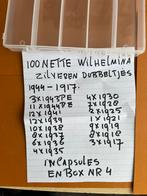 100 NETTE WILHELMINA
ZILVEREN DUBBELTJES
1944-1917.
3X1943PE
11X1944PE
12X1941
12X1939
10X1938
8X1937
6X1936
4X1935
4X1930
2X1928
2X1925
1X1921
9X1919
8X1918
3X1917
IN CAPSULES
EN BOX NR 4